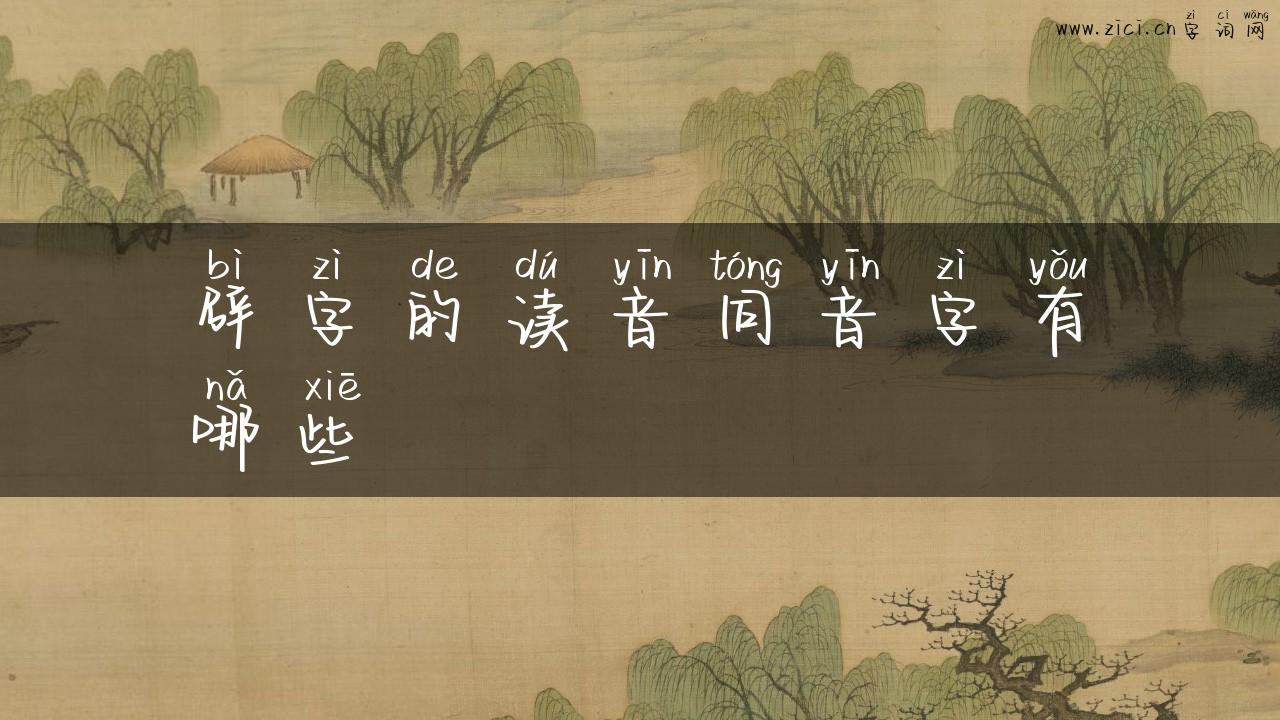 zì cí wǎng
www.zici.cn 字词网
bì zì de dú yīn tóng yīn zì yǒu
辟字的读音同音字有
nǎ xiē
哪些